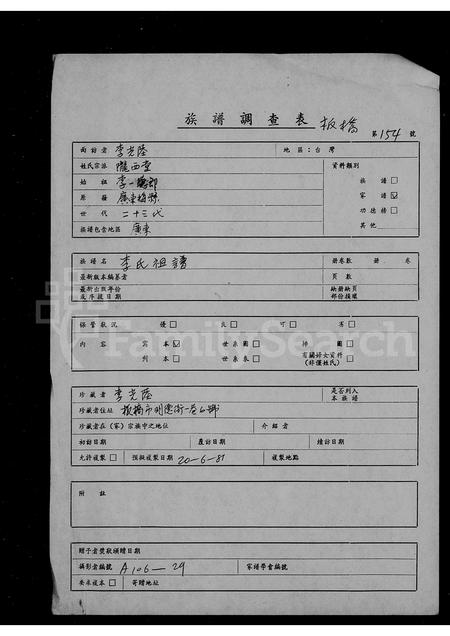 族譜調查表 板橋
第154號
面訪者 李光陸 地區：台灣
姓氏宗派 隴西堂 資料類別
始祖 李一郎 族譜
原籍 廣東梅縣 家譜 ☑
世代 二十三代 功德榜
族譜包含地區 廣東 其他
族譜名 李氏祖譜 冊卷數 冊 卷
最新版本編纂者 頁數
最新出版年份或序提日期 缺冊缺頁部份損壞
保管狀況 優 良 可 有
內容 寫本 ☑ 世系圖 掃圖
刊本 世系表 有關婦女資料(非僅姓氏)
珍藏者 李光陸 是否列入本族譜
珍藏者住址 板橋市明德街一巷6號
珍藏者在(家)宗族中之地位 介紹者
初訪日期 產訪日期 續訪日期
允許複製 預擬複製日期 20-6-81 複製地點
附註
贈予者獎狀頒贈日期
攝影者編號 A106-29 家譜學會編號
要求複本 寄贈地址
FamilySearch